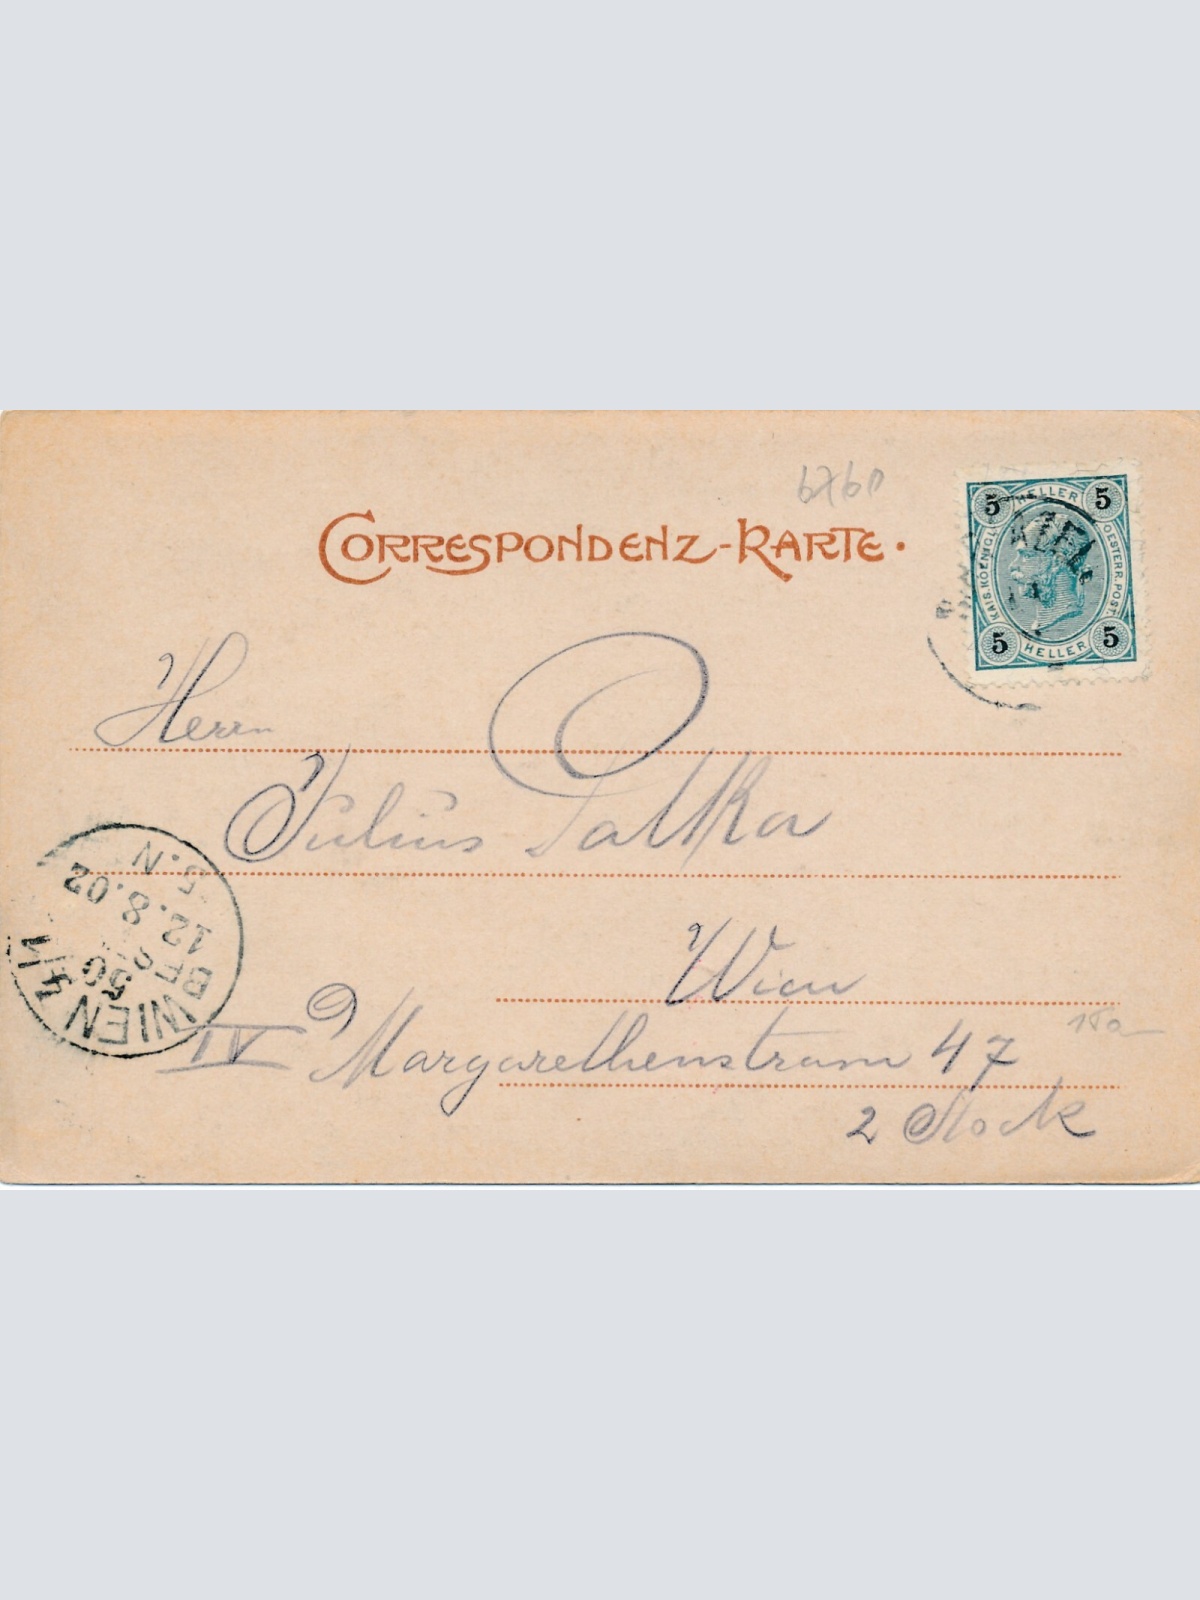 6760
CORRESPONDENZ-KARTE.
5 HELLER 5
KAIS. KÖENIGL. OESTERR. POST.
5 HELLER 5
Herrn
Julius Patka
Wien
IV Margarethenstrasse 47
2 Stock
150-
WIEN 4/1
50
BE
12.8.02
5.N